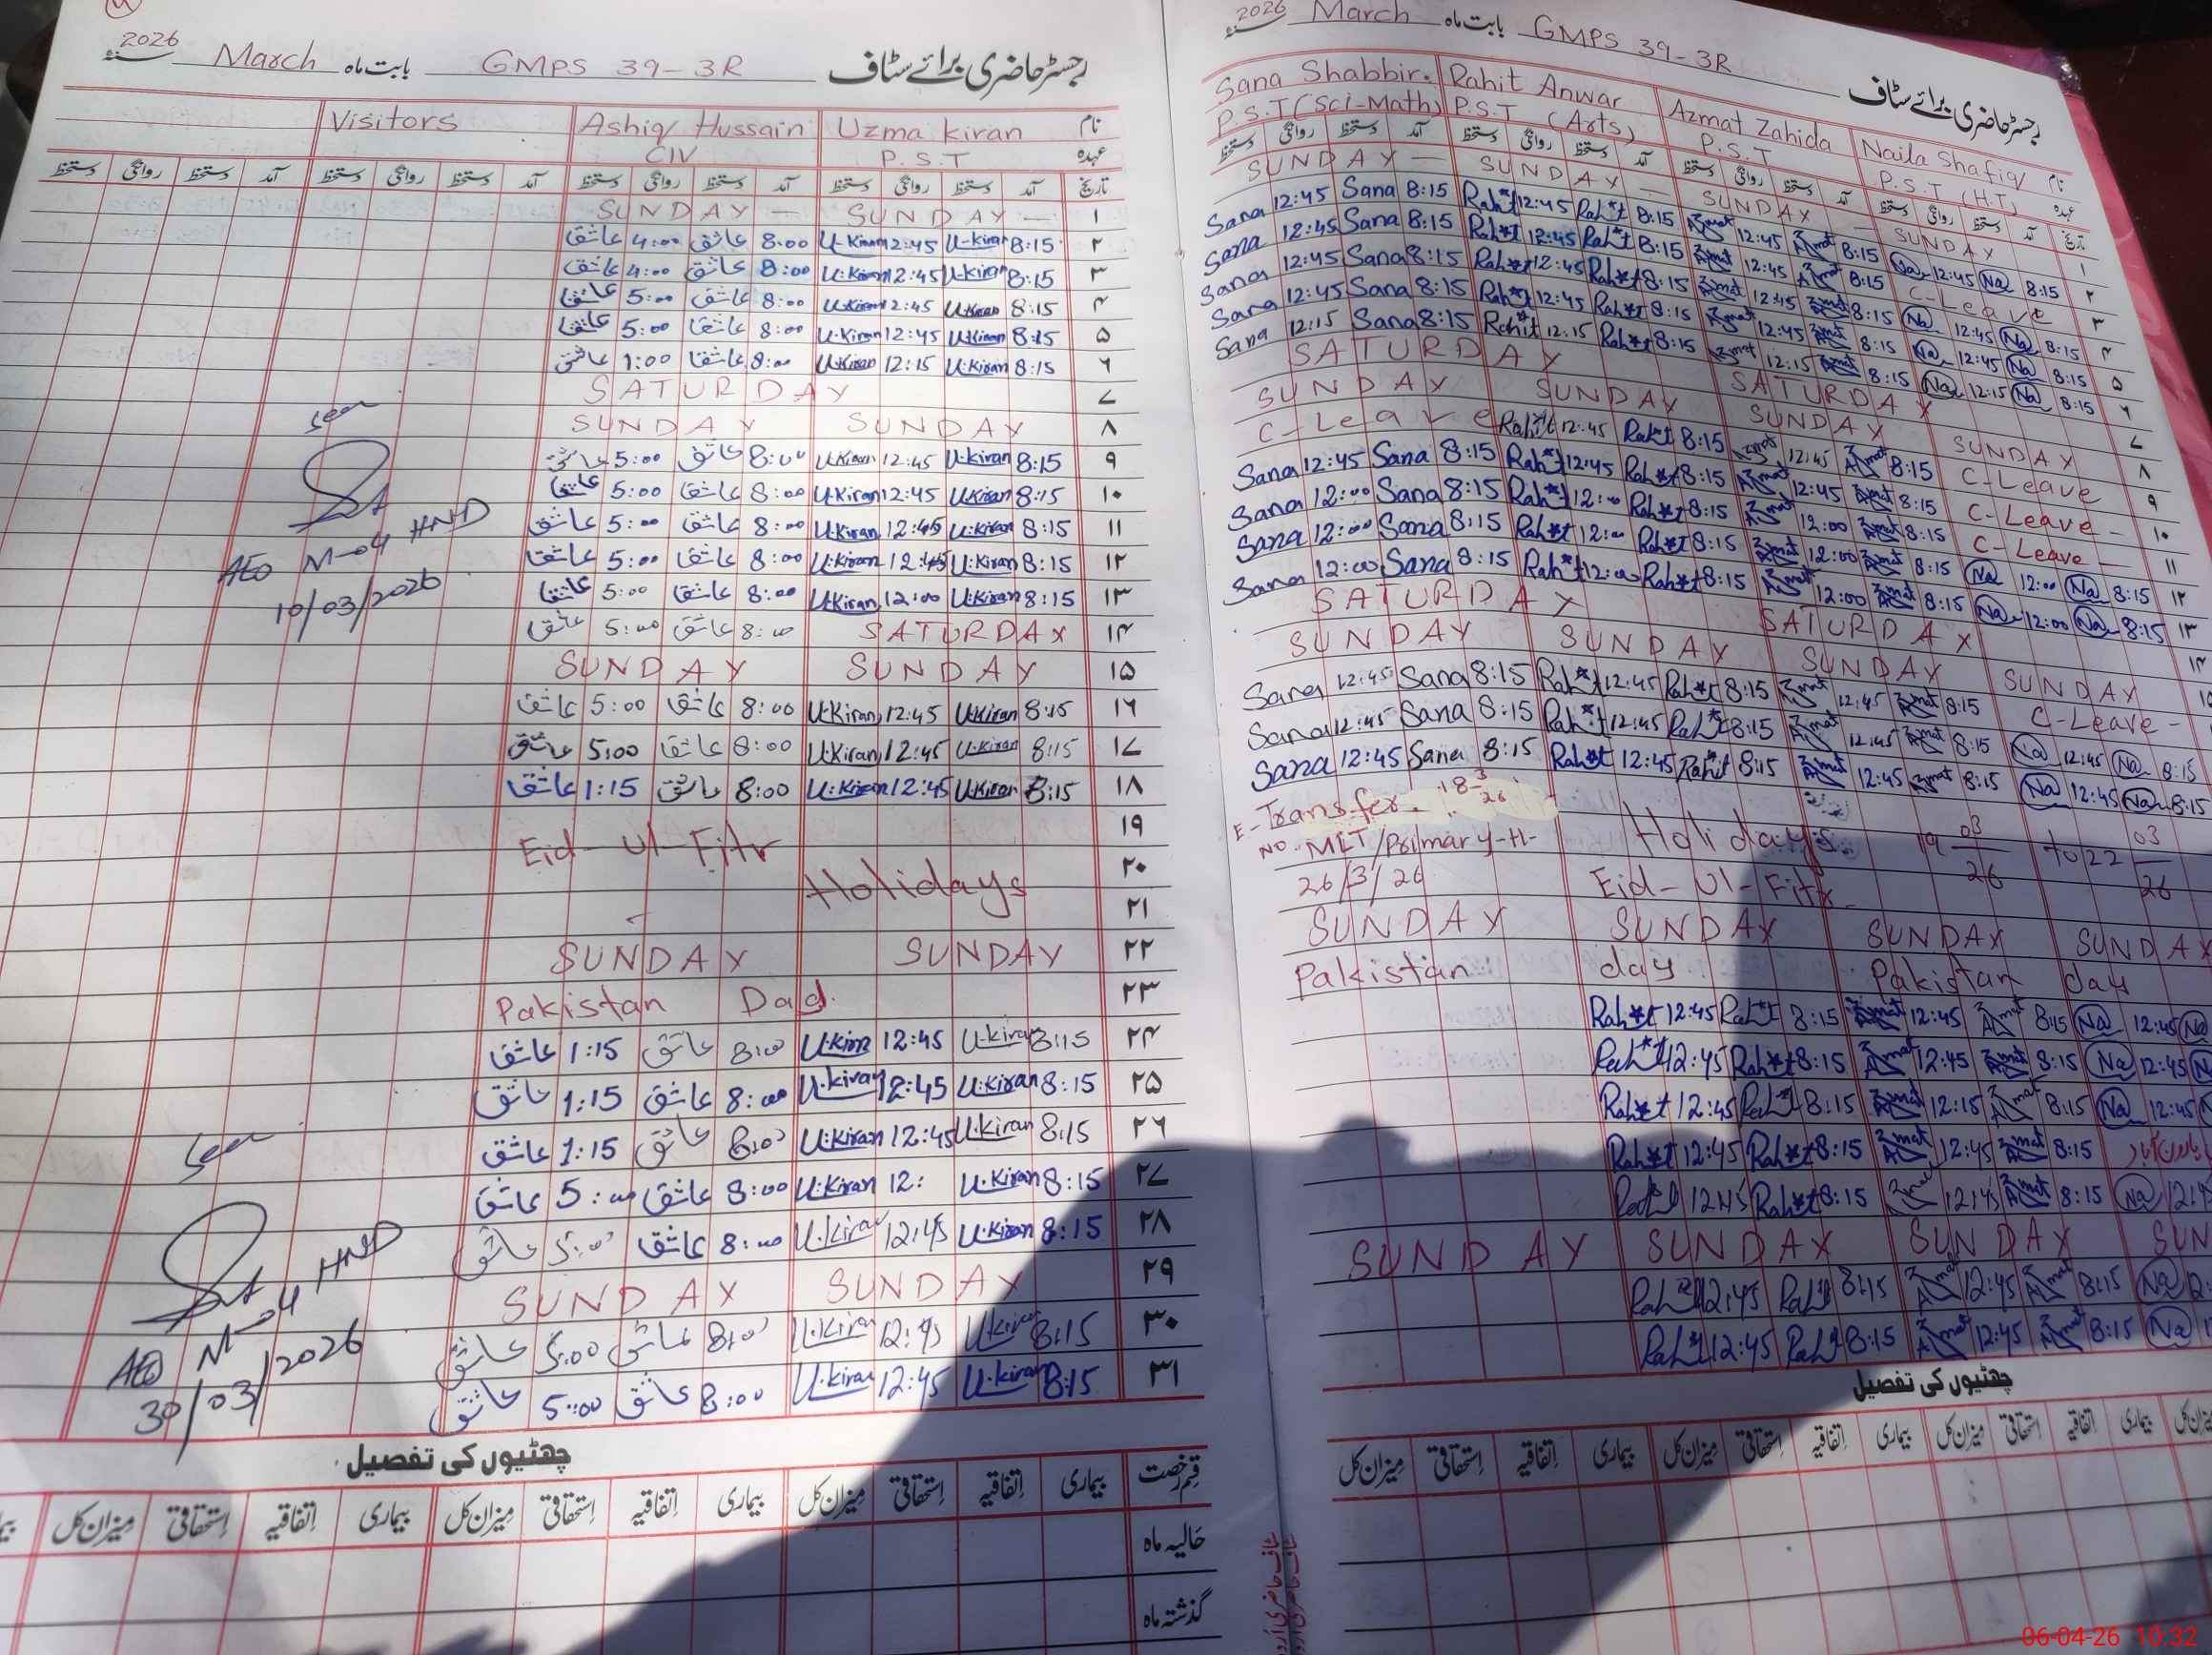 رجسٹر حاضری برائے سٹاف GMPS 39-3R بابت ماہ March 2026
نام Uzma Kiran Ashiq Hussain Visitors
عہدہ P.S.T C/V
تاریخ آمد دستخط روانگی دستخط آمد دستخط روانگی دستخط آمد دستخط روانگی دستخط آمد دستخط روانگی دستخط
۱ SUNDAY SUNDAY
۲ 8:15 U-kiran 12:45 U-Kiran 8:00 عاشق 4:00 عاشق
۳ 8:15 U.Kiran 12:45 U.Kiran 8:00 عاشق 4:00 عاشق
۴ 8:15 U.Kiran 12:45 U.Kiran 8:00 عاشق 5:00 عاشق
۵ 8:15 U.Kiran 12:45 U.Kiran 8:00 عاشق 5:00 عاشق
۶ 8:15 U.Kiran 12:15 U.Kiran 8:00 عاشق 1:00 عاشق
۷ SATURDAY
۸ SUNDAY SUNDAY
۹ 8:15 U.kiran 12:45 U.Kiran 8:00 عاشق 5:00 عاشق
۱۰ 8:15 U.Kiran 12:45 U.Kiran 8:00 عاشق 5:00 عاشق
۱۱ 8:15 U.Kiran 12:45 U.Kiran 8:00 عاشق 5:00 عاشق
۱۲ 8:15 U.Kiran 12:45 U.Kiran 8:00 عاشق 5:00 عاشق
۱۳ 8:15 U.Kiran 12:00 U.Kiran 8:00 عاشق 5:00 عاشق
۱۴ SATURDAY 8:00 عاشق 5:00 عاشق
۱۵ SUNDAY SUNDAY
۱۶ 8:15 U.Kiran 12:45 U.Kiran 8:00 عاشق 5:00 عاشق
۱۷ 8:15 U.Kiran 12:45 U.Kiran 8:00 عاشق 5:00 عاشق
۱۸ 8:15 U.Kiran 12:45 U.Kiran 8:00 عاشق 1:15 عاشق
۱۹ Eid-ul-Fitr
۲۰ Holidays
۲۱
۲۲ SUNDAY SUNDAY
۲۳ Pakistan Day
۲۴ 8:15 U.kiran 12:45 U.Kiran 8:00 عاشق 1:15 عاشق
۲۵ 8:15 U.Kiran 12:45 U.kiran 8:00 عاشق 1:15 عاشق
۲۶ 8:15 U.kiran 12:45 U.Kiran 8:00 عاشق 1:15 عاشق
۲۷ 8:15 U.Kiran 12: U.Kiran 8:00 عاشق 5:00 عاشق
۲۸ 8:15 U.Kiran 12:45 U.kiran 8:00 عاشق 5:00 عاشق
۲۹ SUNDAY SUNDAY
۳۰ 8:15 U.kiran 12:45 U.kiran 8:00 عاشق 5:00 عاشق
۳۱ 8:15 U.kiran 12:45 U.kiran 8:00 عاشق 5:00 عاشق
Seen
AEO M-04 HND
10/03/2026
Seen
AEO M-04 HND
30/03/2026
چھٹیوں کی تفصیل
قسم رخصت بیماری اتفاقیہ استحقاقی میزان کل بیماری اتفاقیہ استحقاقی میزان کل بیماری اتفاقیہ استحقاقی میزان کل
حالیہ ماہ
گذشتہ ماہ
رجسٹر حاضری برائے سٹاف GMPS 39-3R بابت ماہ March 2026
نام Naila Shafiq Azmat Zahida Rahit Anwar Sana Shabbir.
عہدہ P.S.T (H.T) P.S.T P.S.T (Arts) P.S.T (Sci-Math)
تاریخ آمد دستخط روانگی دستخط آمد دستخط روانگی دستخط آمد دستخط روانگی دستخط آمد دستخط روانگی دستخط
۱ SUNDAY SUNDAY SUNDAY SUNDAY
۲ 8:15 Na 12:45 Na 8:15 Azmat 12:45 Azmat 8:15 Rahit 12:45 Rahit 8:15 Sana 12:45 Sana
۳ C-Leave 8:15 Azmat 12:45 Azmat 8:15 Rahit 12:45 Rahit 8:15 Sana 12:45 Sana
۴ 8:15 Na 12:45 Na 8:15 Azmat 12:45 Azmat 8:15 Rahit 12:45 Rahit 8:15 Sana 12:45 Sana
۵ 8:15 Na 12:45 Na 8:15 Azmat 12:45 Azmat 8:15 Rahit 12:45 Rahit 8:15 Sana 12:45 Sana
۶ 8:15 Na 12:15 Na 8:15 Azmat 12:15 Azmat 8:15 Rahit 12:15 Rahit 8:15 Sana 12:15 Sana
۷ SATURDAY SATURDAY
۸ SUNDAY SUNDAY SUNDAY SUNDAY
۹ C-Leave 8:15 Azmat 12:45 Azmat 8:15 Rahit 12:45 Rahit C-Leave
۱۰ C-Leave 8:15 Azmat 12:45 Azmat 8:15 Rahit 12:45 Rahit 8:15 Sana 12:45 Sana
۱۱ C-Leave 8:15 Azmat 12:00 Azmat 8:15 Rahit 12:00 Rahit 8:15 Sana 12:00 Sana
۱۲ 8:15 Na 12:00 Na 8:15 Azmat 12:00 Azmat 8:15 Rahit 12:00 Rahit 8:15 Sana 12:00 Sana
۱۳ 8:15 Na 12:00 Na 8:15 Azmat 12:00 Azmat 8:15 Rahit 12:00 Rahit 8:15 Sana 12:00 Sana
۱۴ SATURDAY SATURDAY
SUNDAY SUNDAY SUNDAY SUNDAY
C-Leave 8:15 Azmat 12:45 Azmat 8:15 Rahit 12:45 Rahit 8:15 Sana 12:45 Sana
8:15 Na 12:45 Na 8:15 Azmat 12:45 Azmat 8:15 Rahit 12:45 Rahit 8:15 Sana 12:45 Sana
8:15 Na 12:45 Na 8:15 Azmat 12:45 Azmat 8:15 Rahit 12:45 Rahit 8:15 Sana 12:45 Sana
E-Transfer. 18-3/26 Holidays 19 03/26 to 22 03/26
NO. MLT/Primary-H-
26/3/26 Eid-Ul-Fitr
SUNDAY SUNDAY SUNDAY SUNDAY
Pakistan day Pakistan day
Rahit 12:45 Rahit 8:15 Azmat 12:45 Azmat 8:15 Na 12:45 Na
Rahit 12:45 Rahit 8:15 Azmat 12:45 Azmat 8:15 Na 12:45
Rahit 12:45 Rahit 8:15 Azmat 12:15 Azmat 8:15 Na 12:45
Rahit 12:45 Rahit 8:15 Azmat 12:45 Azmat 8:15
Rahit 12:45 Rahit 8:15 Azmat 12:45 Azmat 8:15 Na
SUNDAY SUNDAY SUNDAY SUN
Rahit 12:45 Rahit 8:15 Azmat 12:45 Azmat 8:15 Na
Rahit 12:45 Rahit 8:15 Azmat 12:45 Azmat 8:15 Na
چھٹیوں کی تفصیل
اتفاقیہ بیماری میزان کل استحقاقی اتفاقیہ بیماری میزان کل استحقاقی اتفاقیہ بیماری میزان کل استحقاقی
06-04-26 10:32